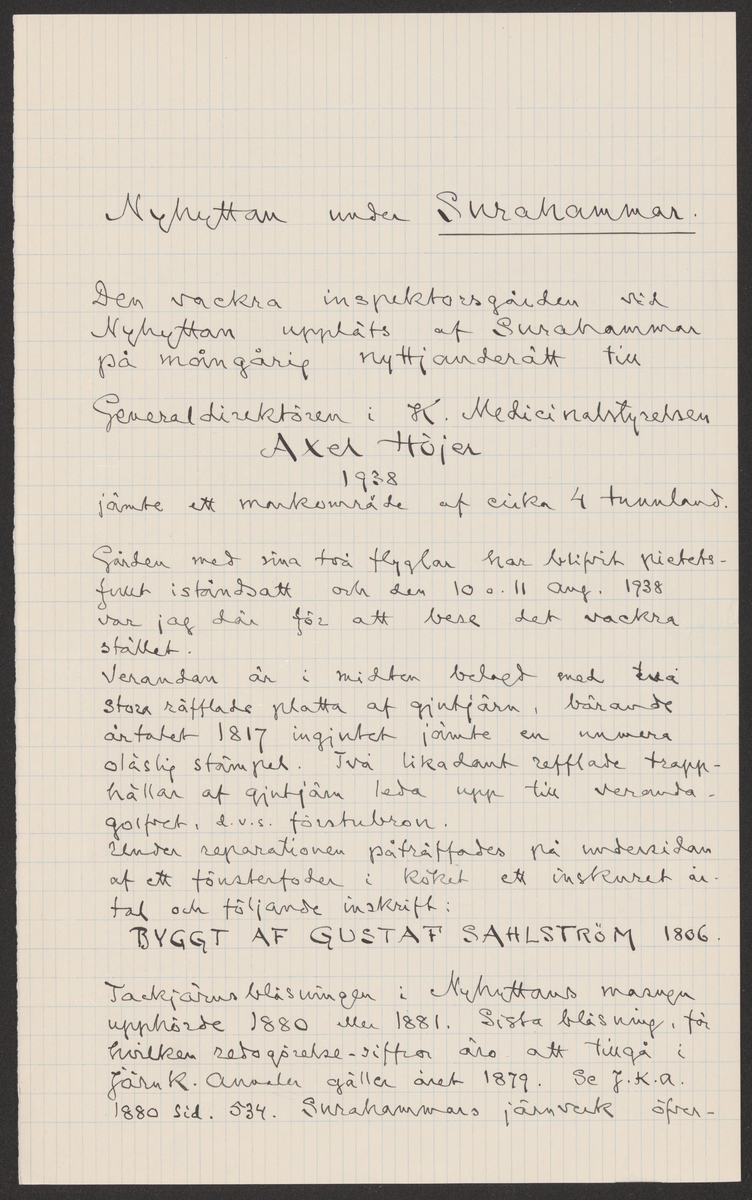 Nyhyttan under Surahammar.
Den vackra inspektorsgården vid
Nyhyttan upplåts af Surahammar
på mångårig nyttjanderätt till
Generaldirektören i K. Medicinalstyrelsen
Axel Höjer
1938
jämte ett markområde af cirka 4 tunnland.
Gården med sina två flyglar har blifvit pietets-
fullt iståndsatt och den 10 o. 11 Aug. 1938
var jag där för att bese det vackra
stället.
Verandan är i midten belagd med
stora räfflade platta af gjutjärn, bärande
årtalet 1817 ingjutet jämte en numera
oläslig stämpel. Två likadant refflade trapp-
hällar af gjutjärn leda upp till veranda-
golfvet, d.v.s. förstubron.
Under reparationen påträffades på undersidan
af ett fönsterfoder i köket ett inskuret år-
tal och följande inskrift:
BYGGT AF GUSTAF SAHLSTRÖM 1806.
Tackjärnsblåsningen i Nyhyttans masugn
upphörde 1880 eller 1881. Sista blåsning, för
hvilken redogörelse-siffror äro att tillgå i
Järnk. Annaler gäller året 1879. Se J.K.A.
1880 sid. 534. Surahammars järnverk öfver-